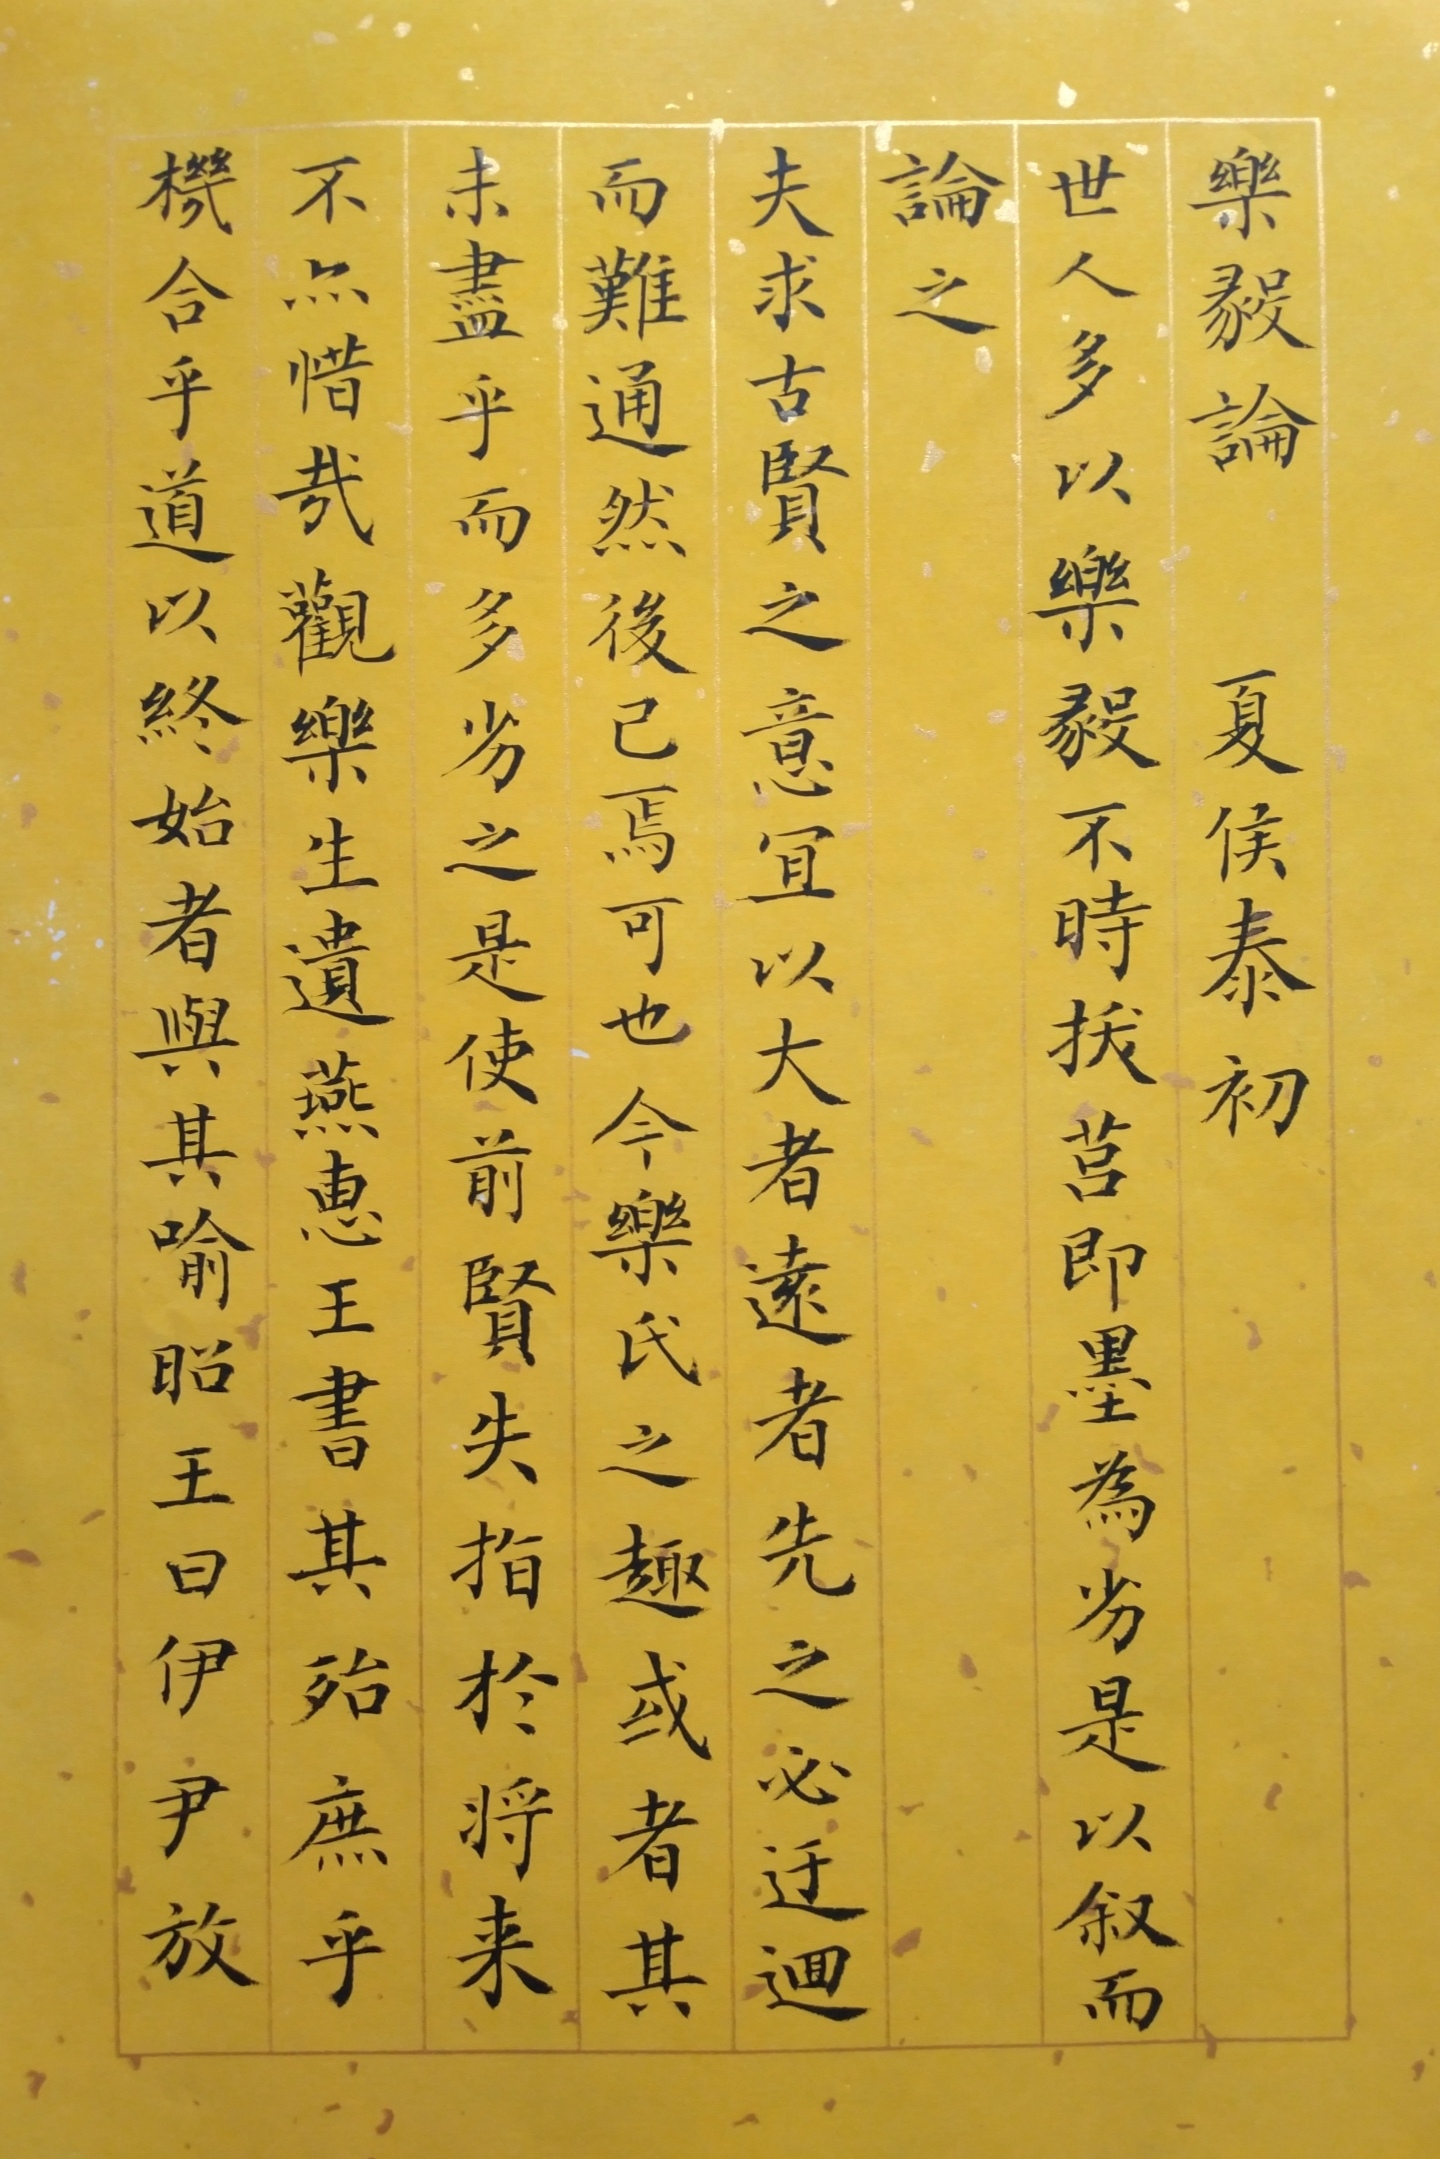 樂毅論 夏侯泰初
世人多以樂毅不時拔莒即墨為劣是以叙而
論之
夫求古賢之意宜以大者遠者先之必迂迴
而難通然後已焉可也今樂氏之趣或者其
未盡乎而多劣之是使前賢失指於将来
不亦惜哉觀樂生遺燕惠王書其殆庶乎
機合乎道以終始者與其喻昭王曰伊尹放